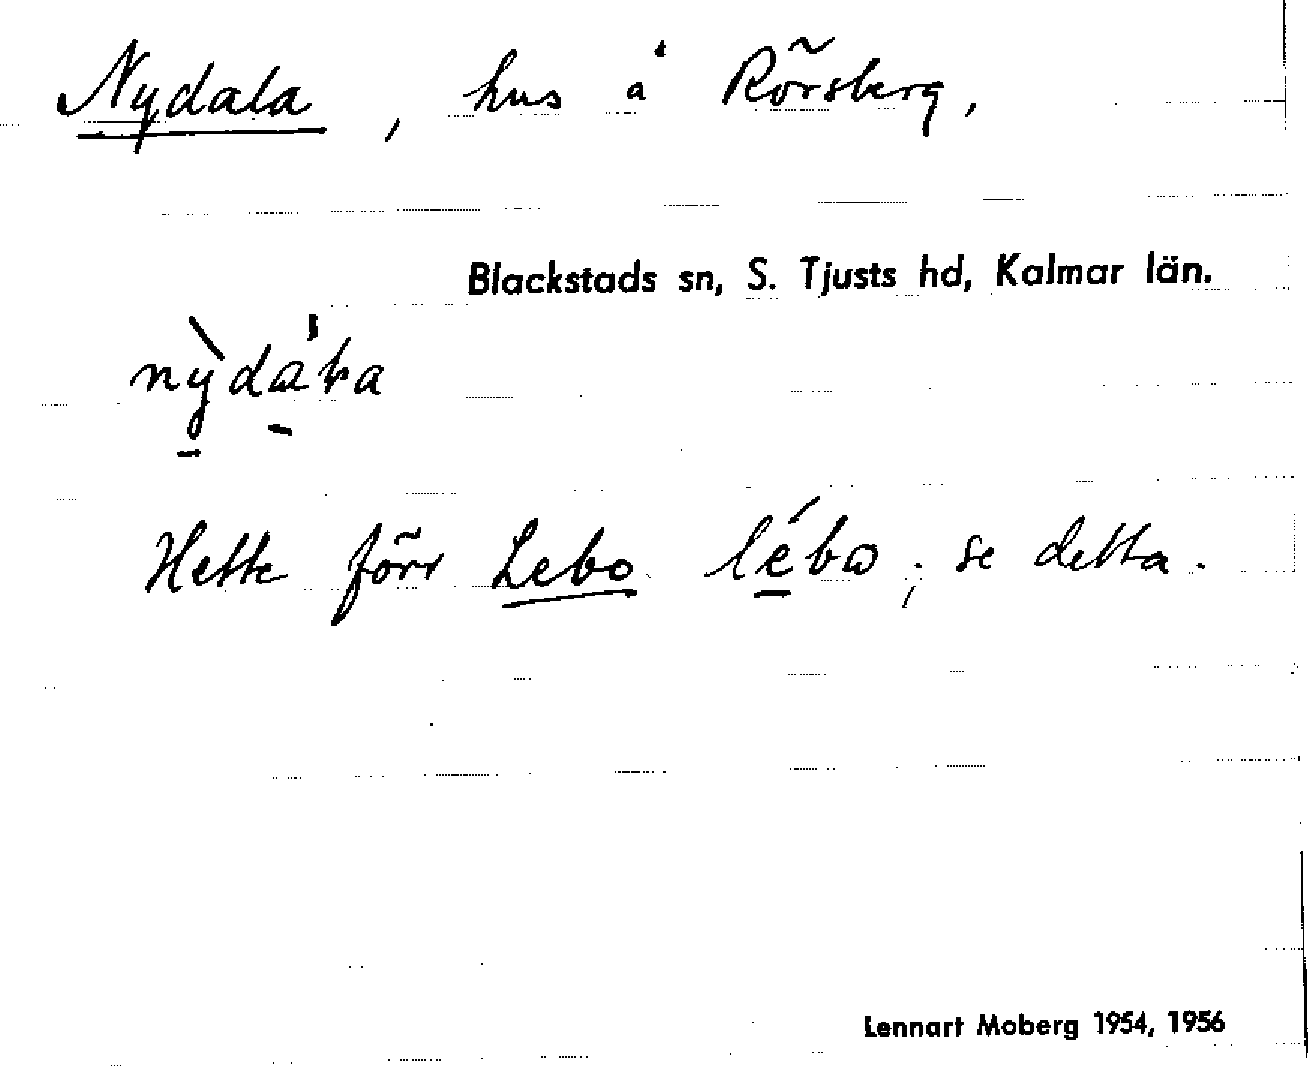 Nydala, hus å Rörsberg,
Blackstads sn, S. Tjusts hd, Kalmar län.
Hette förr Lebo lébω; se detta.
Lennart Moberg 1954, 1956